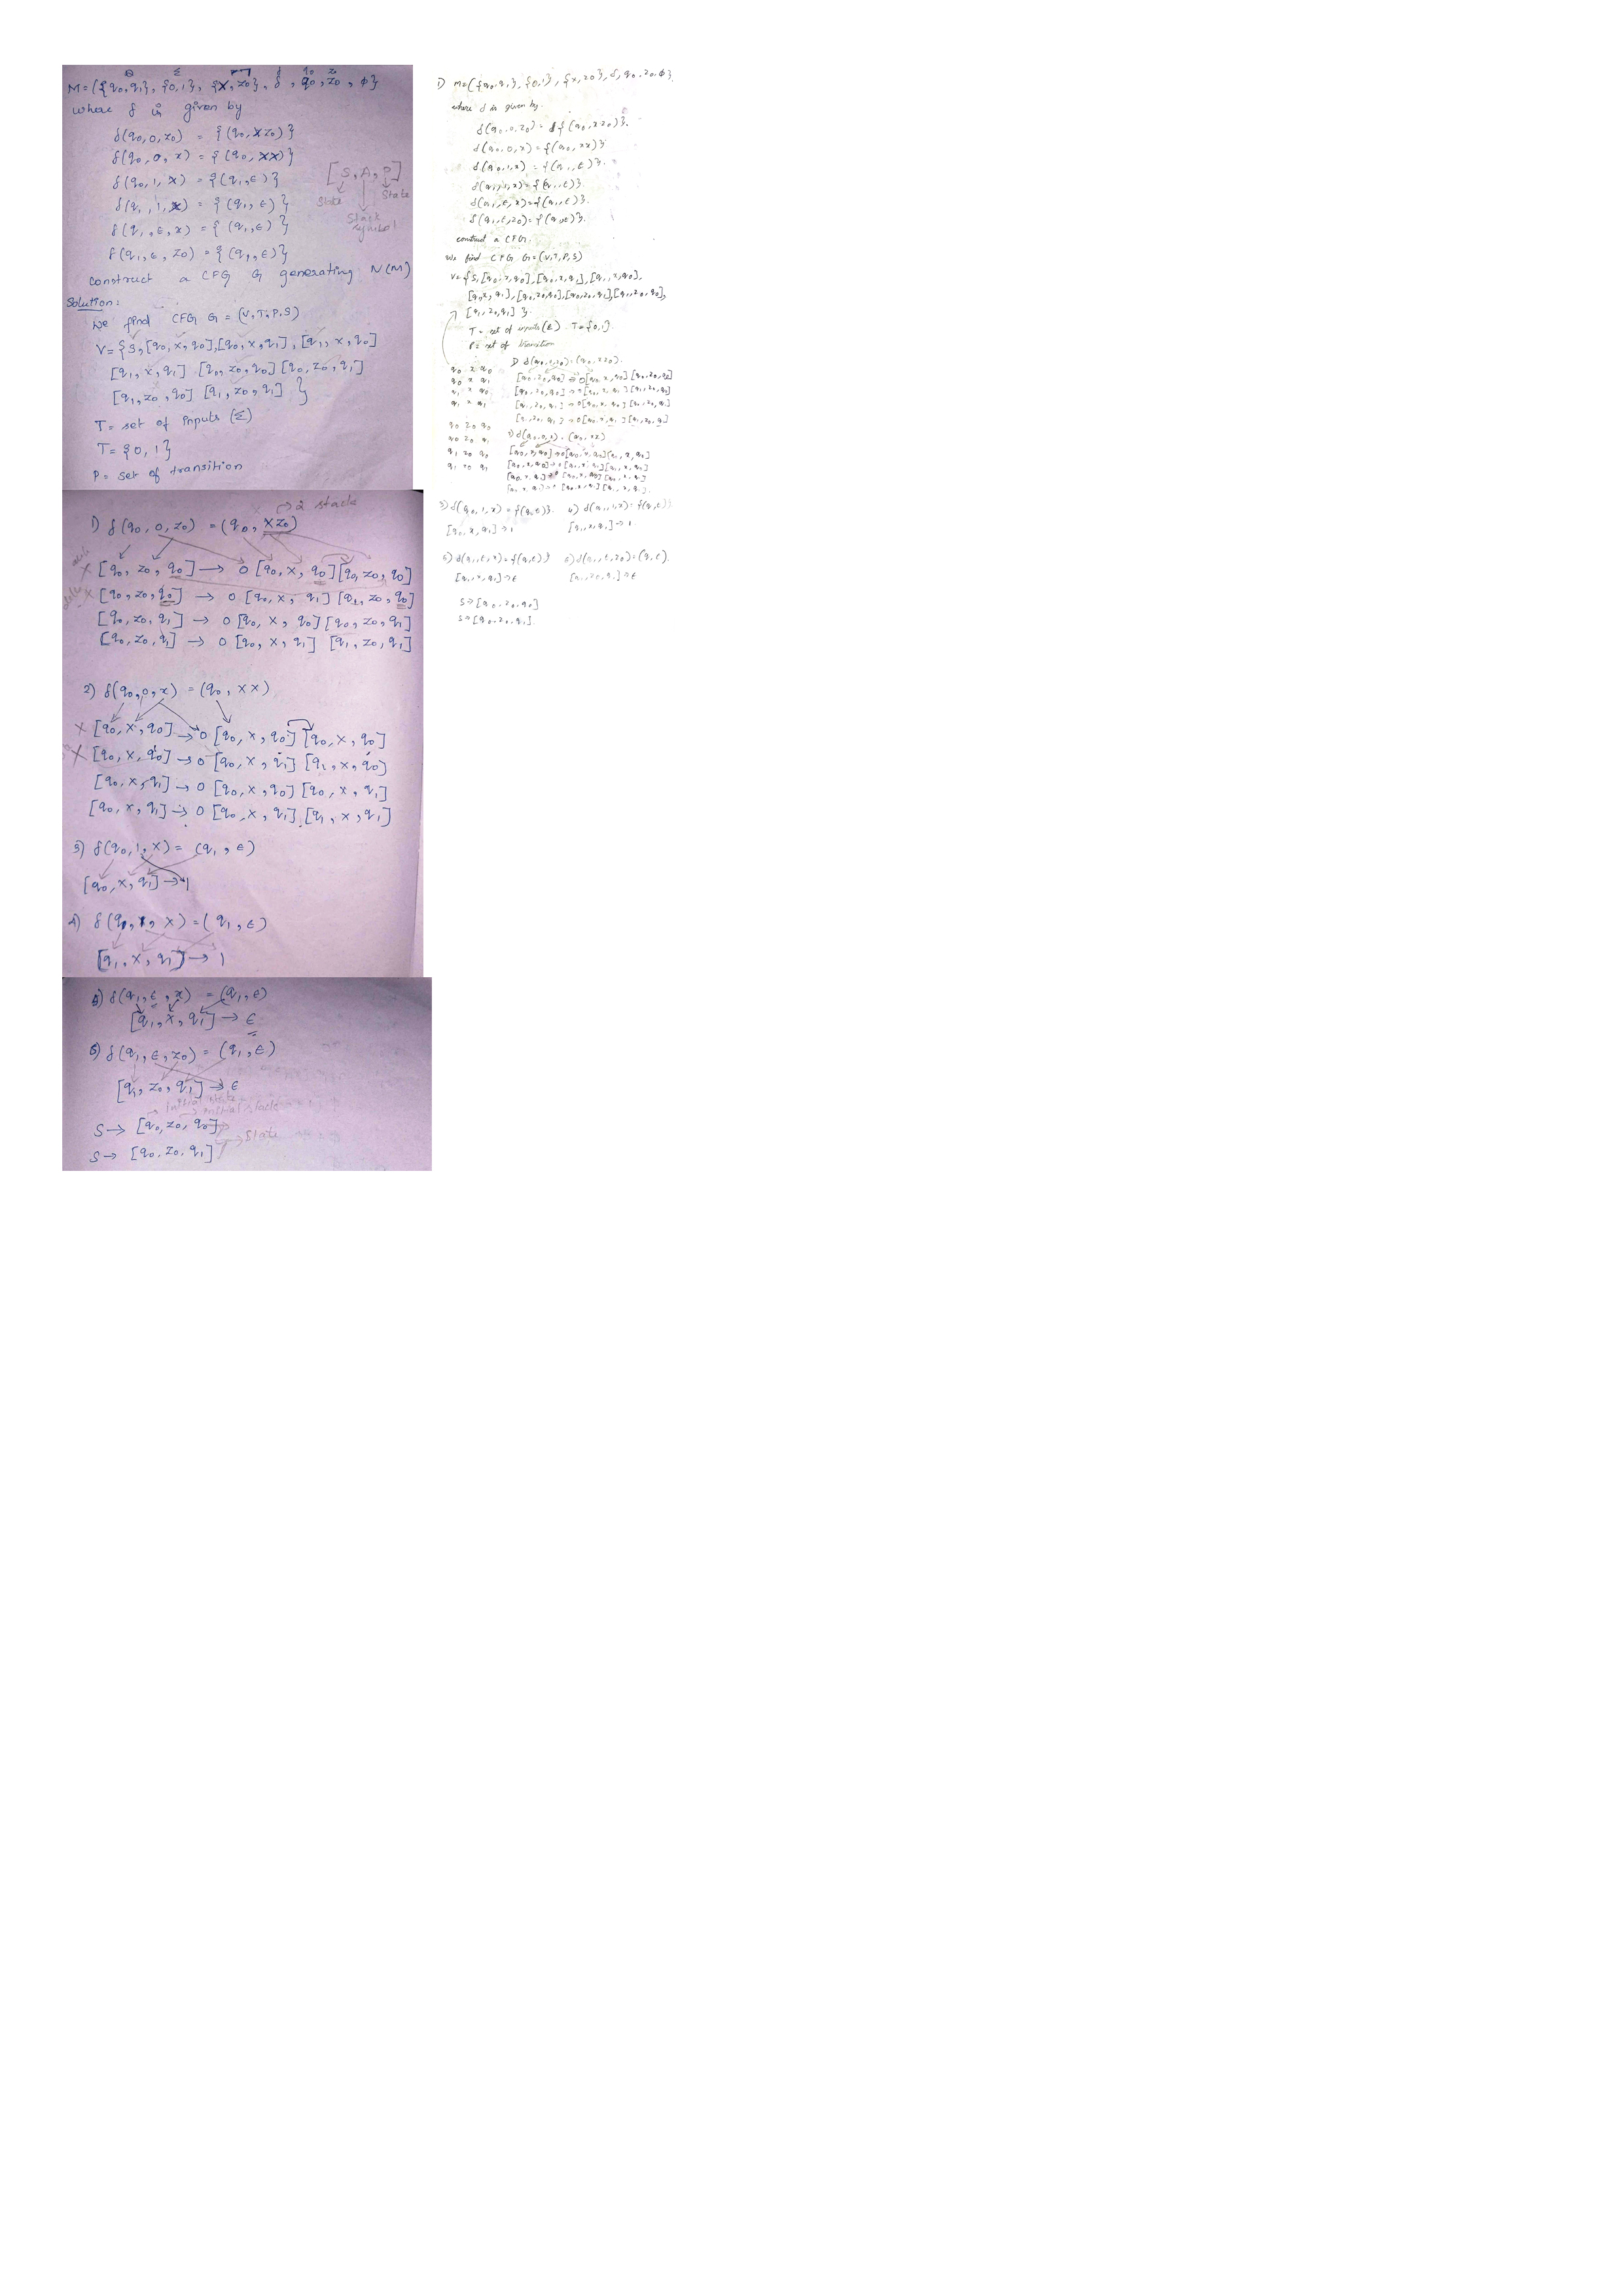 M=({q0,q1}, {0,1}, {X, z0}, δ, q0, z0, φ}
where δ is given by
δ(q0,0,z0) = {(q0,Xz0)}
δ(q0,0,x) = {(q0,XX)}
δ(q0,1,X) = {(q1,ϵ)}
δ(q1,1,X) = {(q1,ϵ)}
δ(q1,ϵ,x) = {(q1,ϵ)}
δ(q1,ϵ,z0) = {(q1,ϵ)}
[S,A,P]
State State
Stack
symbol
construct a CFG G generating N(M)
Solution:
We find CFG G = (V,T,P,S)
V={S,[q0,x,q0],[q0,x,q1],[q1,x,q0]
[q1,x,q1] [q0,z0,q0] [q0,z0,q1]
[q1,z0,q0] [q1,z0,q1] }
T= set of inputs (Σ)
T={0,1}
P= set of transition
→2 stack
1) δ(q0,0,z0) =(q0,Xz0)
X [q0,z0,q0] → 0 [q0,x,q0][q0,z0,q0]
X [q0,z0,q0] → 0 [q0,x,q1] [q1,z0,q0]
[q0,z0,q1] → 0 [q0,x,q0] [q0,z0,q1]
[q0,z0,q1] → 0 [q0,x,q1] [q1,z0,q1]
2) δ(q0,0,x) =(q0,XX)
X [q0,x,q0] → 0 [q0,x,q0] [q0,x,q0]
X [q0,x,q0] → 0 [q0,x,q1] [q1,x,q0]
[q0,x,q1] → 0 [q0,x,q0] [q0,x,q1]
[q0,x,q1] → 0 [q0,x,q1] [q1,x,q1]
3) δ(q0,1,X) = (q1,ϵ)
[q0,x,q1] → 1
4) δ(q1,1,X) =(q1,ϵ)
[q1,x,q1] → 1
5) δ(q1,ϵ,x) =(q1,ϵ)
[q1,x,q1] → ϵ
6) δ(q1,ϵ,z0) = (q1,ϵ)
[q1,z0,q1] → ϵ
→ initial state
→ initial stack
S → [q0,z0,q0]
→ State
S → [q0,z0,q1]
1) M=({q0,q1}, {0,1}, {x,z0}, δ, q0, z0, φ}
where δ is given by.
δ(q0,0,z0) = {(q0,xz0)}.
δ(q0,0,x) = {(q0,xx)}
δ(q0,1,x) = {(q1,ϵ)}.
δ(q1,1,x) = {(q1,ϵ)}.
δ(q1,ϵ,x) = {(q1,ϵ)}.
δ(q1,ϵ,z0) = {(q1,ϵ)}.
construct a CFG.
We find CFG G=(V,T,P,S)
V={S,[q0,x,q0],[q0,x,q1],[q1,x,q0],
[q1,x,q1],[q0,z0,q0],[q0,z0,q1],[q1,z0,q0],
[q1,z0,q1] }.
T= set of inputs(Σ) T={0,1}.
P= set of transition
q0 x q0
q0 x q1
q1 x q0
q1 x q1
q0 z0 q0
q0 z0 q1
q1 z0 q0
q1 z0 q1
1) δ(q0,0,z0)=(q0,xz0).
[q0,z0,q0] → 0[q0,x,q0] [q0,z0,q0]
[q0,z0,q0] → 0[q0,x,q1] [q1,z0,q0]
[q1,z0,q1] → 0[q0,x,q0] [q0,z0,q1]
[q1,z0,q1] → 0[q0,x,q1] [q1,z0,q1]
2) δ(q0,0,x) = (q0,xx)
[q0,x,q0] → 0[q0,x,q0] [q1,x,q0]
[q0,x,q0] → 0[q1,x,q1] [q1,x,q1]
3) δ(q0,1,x) = {(q1,ϵ)}. 4) δ(q1,1,x) = {(q1,ϵ)}
[q0,x,q1] → 1 [q1,x,q1] → 1.
5) δ(q1,ϵ,x) = {(q1,ϵ)} 6) δ(q1,ϵ,z0) = (q1,ϵ).
[q1,x,q1] → ϵ [q1,z0,q1] → ϵ
S → [q0,z0,q0]
S → [q0,z0,q1].